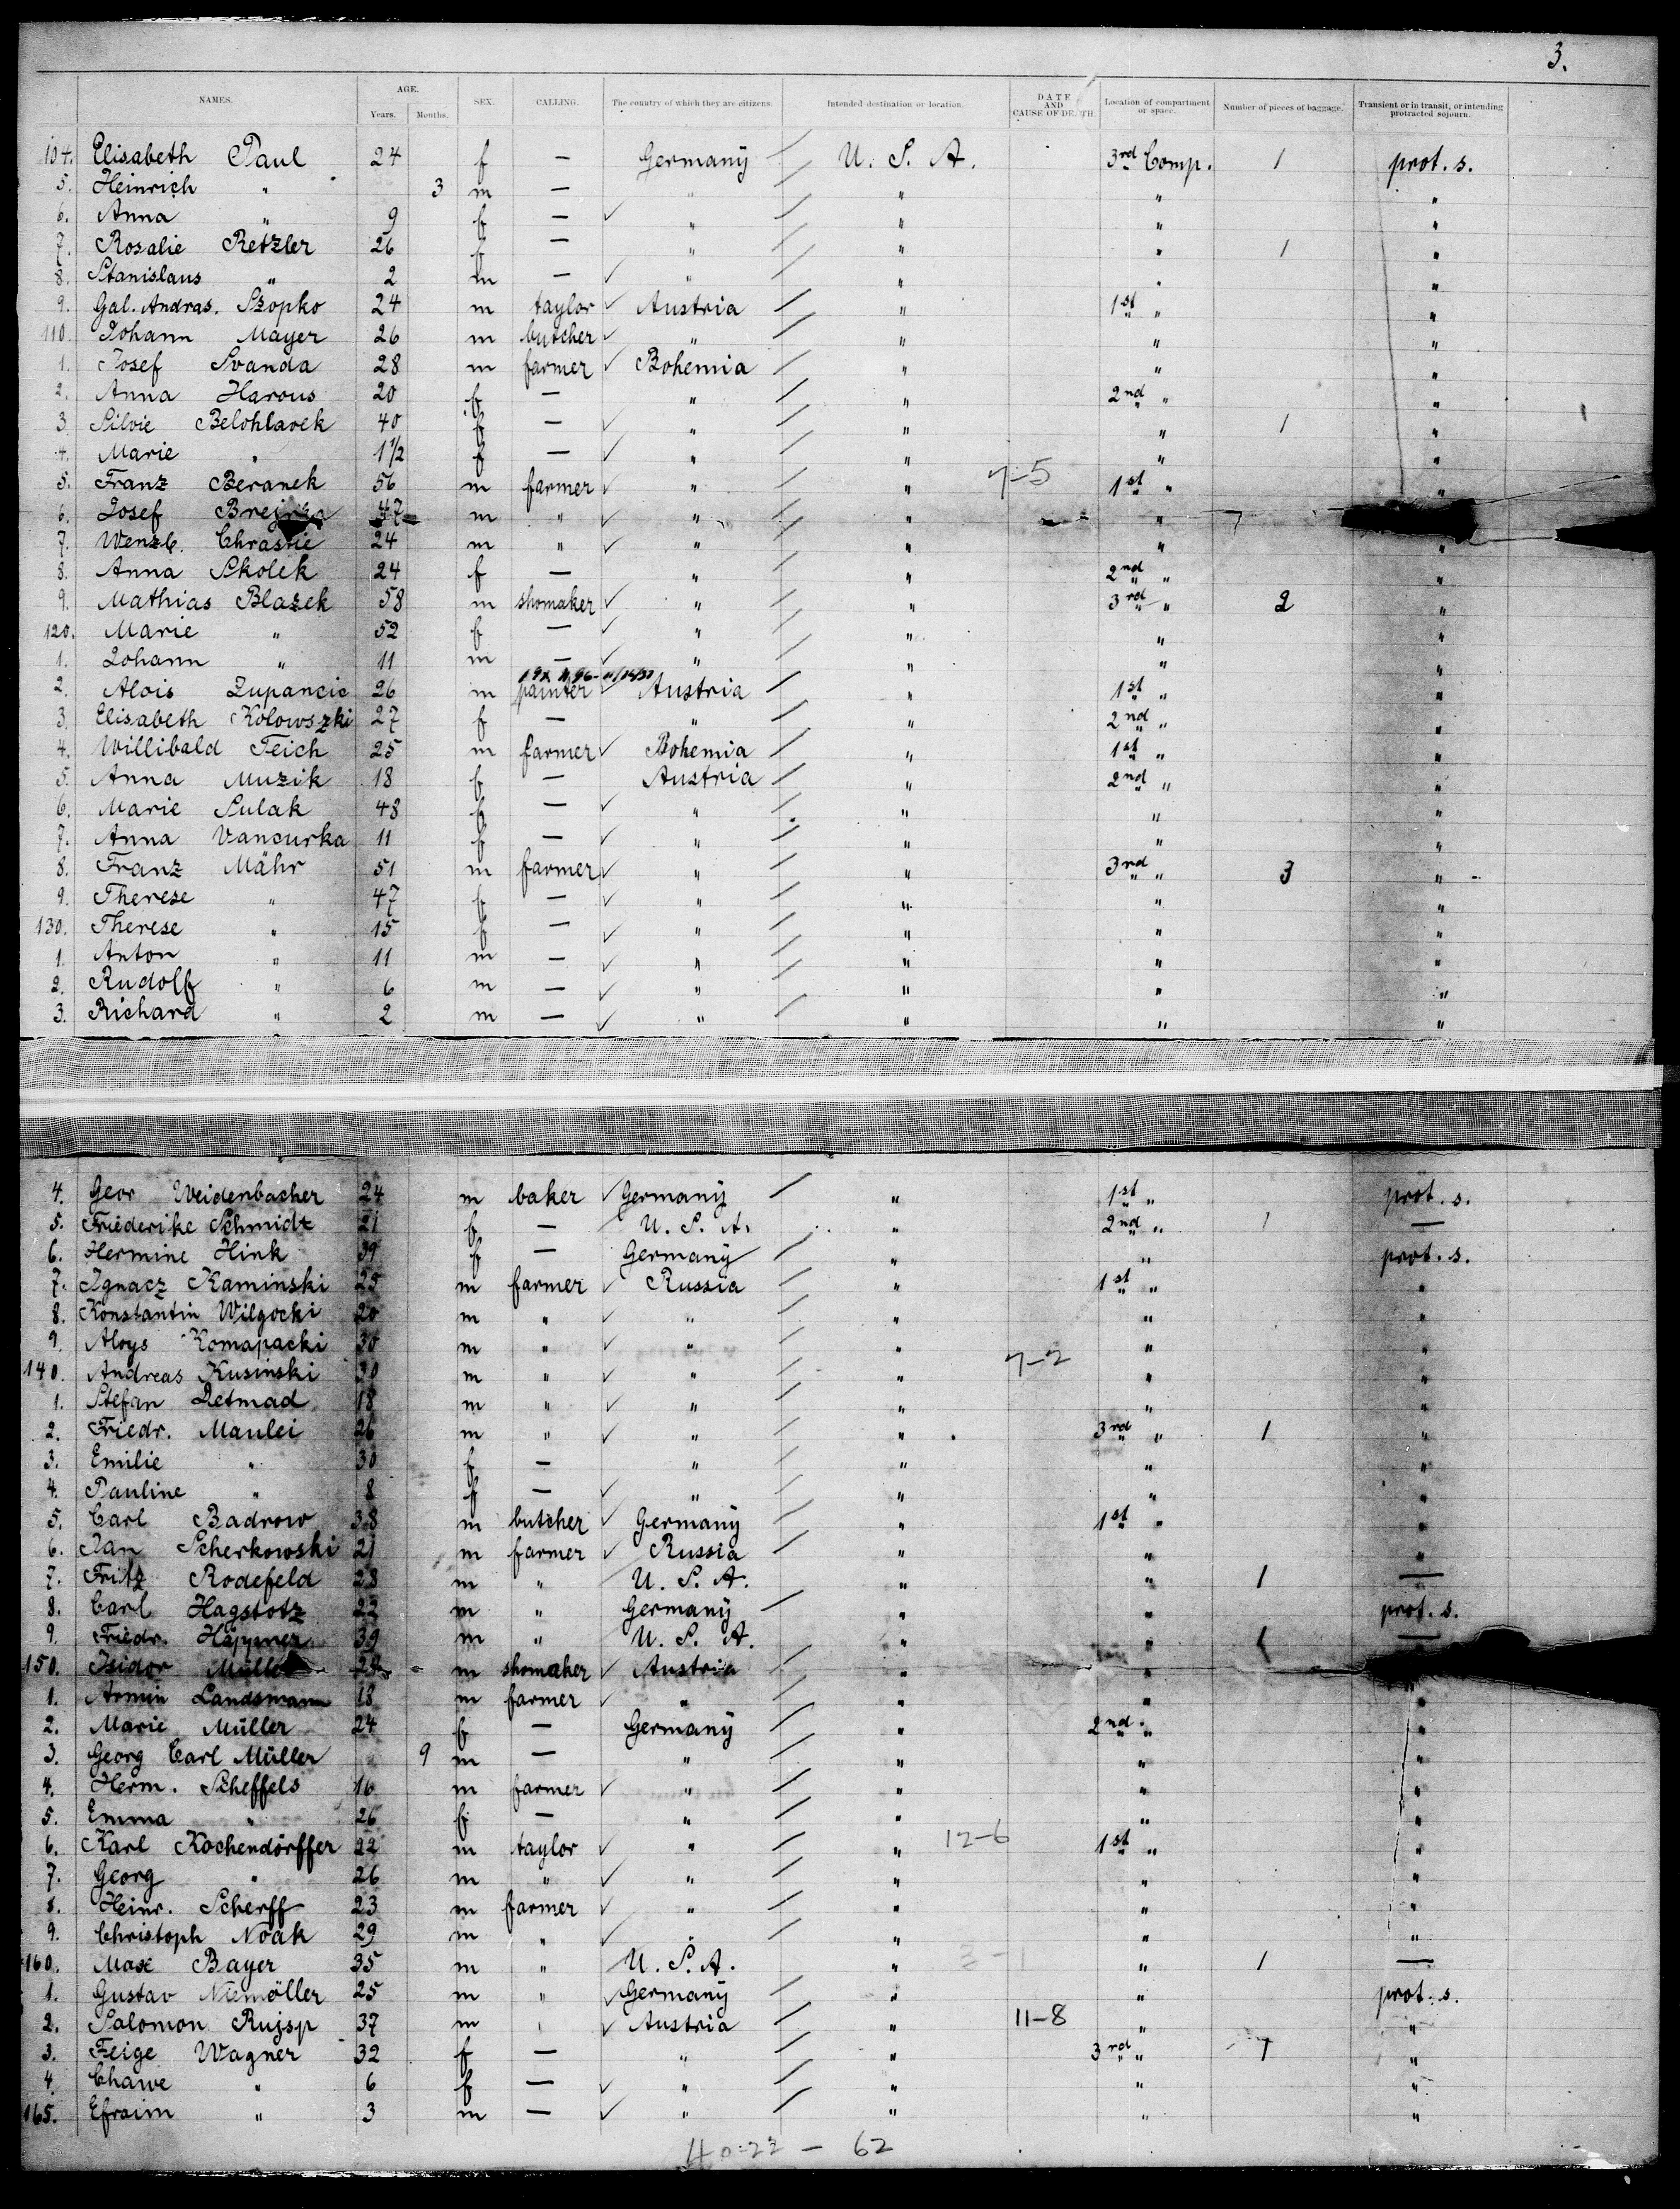 3.
NAMES. AGE. Years. Months. SEX. CALLING. The country of which they are citizens. Intended destination or location. DATE AND CAUSE OF DEATH. Location of compartment or space. Number of pieces of baggage. Transient or in transit, or intending protracted sojourn.
104. Elisabeth Paul 24 f — Germany U. S. A. 3rd Comp. 1 prot. s.
5. Heinrich " 3 m — " " " "
6. Anna " 9 f — " " " "
7. Rosalie Retzler 26 f — " " " 1 "
8. Stanislaus " 2 m — " " " "
9. Gal. Andras. Szopko 24 m taylor Austria " 1st " "
110. Johann Mayer 26 m butcher " " " "
1. Josef Svanda 28 m farmer Bohemia " " "
2. Anna Harous 20 f — " " 2nd " "
3. Silvie Belohlavek 40 f — " " " 1 "
4. Marie " 1 1/2 f — " " " "
5. Franz Beranek 56 m farmer " " 7-5 1st " "
6. Josef 47 m " " " "
7. Wenzl. Chrastie 24 m " " " " "
8. Anna Skolek 24 f — " " 2nd " "
9. Mathias Blazek 58 m shomaker " " 3rd " 2 "
120. Marie " 52 f — " " " "
1. Johann " 11 m — " " " "
2. Alois Zupancic 26 m painter Austria " 1st " "
3. Elisabeth Kolowszki 27 f — " " 2nd " "
4. Willibald Teich 25 m farmer Bohemia " 1st " "
5. Anna Muzik 18 f — Austria " 2nd " "
6. Marie Sulak 48 f — " " " "
7. Anna Vancurka 11 f — " " " "
8. Franz Mähr 51 m farmer " " 3rd " 3 "
9. Therese " 47 f — " " " "
130. Therese " 15 f — " " " "
1. Anton " 11 m — " " " "
2. Rudolf " 6 m — " " " "
3. Richard " 2 m — " " " "
4. Geor Weidenbacher 24 m baker Germany " 1st " prot. s.
5. Friederike Schmidt 21 f — U. S. A. " 2nd " 1 —
6. Hermine Hink 39 f — Germany " " prot. s.
7. Ignacz Kaminski 25 m farmer Russia " 1st " "
8. Konstantin Wilgocki 20 m " " " " "
9. Aloys Komapacki 30 m " " " " "
140. Andreas Kusinski 30 m " " " 7-2 " "
1. Stefan Detmad 18 m " " " " "
2. Friedr. Maulei 26 m " " " 3rd " 1 "
3. Emilie " 30 f — " " " "
4. Pauline " 8 f — " " " "
5. Carl Badrow 38 m butcher Germany " 1st " "
6. Jan Scherkowski 21 m farmer Russia " " "
7. Fritz Rodefeld 28 m " U. S. A. " " 1 —
8. Carl Hagstotz 22 m " Germany " " prot. s.
9. Friedr. 39 m " U. S. A. " " 1 —
150. Isidor Müller m shomaker Austria " "
1. Armin Landsmann 18 m farmer " " " "
2. Marie Müller 24 f — Germany " 2nd " "
3. Georg Carl Müller 9 m — " " " "
4. Herm. Scheffels 16 m farmer " " " "
5. Emma " 26 f — " " " "
6. Karl Kochendörffer 22 m taylor " 12-6 " 1st " "
7. Georg " 26 m " " " " "
8. Heinr. Scherff 23 m farmer " " " "
9. Christoph Noak 29 m " " " " "
160. Max Bayer 35 m " U. S. A. " 3-1 " 1 —
1. Gustav Niemöller 25 m " Germany " " prot. s.
2. Salomon Rujsp 37 m " Austria " 11-8 " "
3. Feige Wagner 32 f — " " 3rd " 1 "
4. Chawe " 6 f — " " " "
165. Efraim " 3 m — " " " "
40-22 — 62